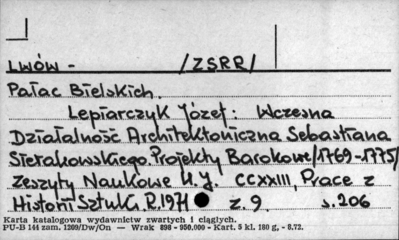 LWÓW - /ZSRR/
Pałac Bielskich.
Lepiarczyk Józef: Wczesna
Działalność Architektoniczna Sebastiana
Sierakowskiego. Projekty Barokowe /1769-1775/
Zeszyty Naukowe U.J. CCXXIII, Prace z
Historii Sztuki. R.1971 z. 9. s. 206
Karta katalogowa wydawnictw zwartych i ciągłych.
PU-B 144 zam. 1209/Dw/On — Wrak 898 - 950.000 - Kart. 5 kl. 180 g, - 8.72.